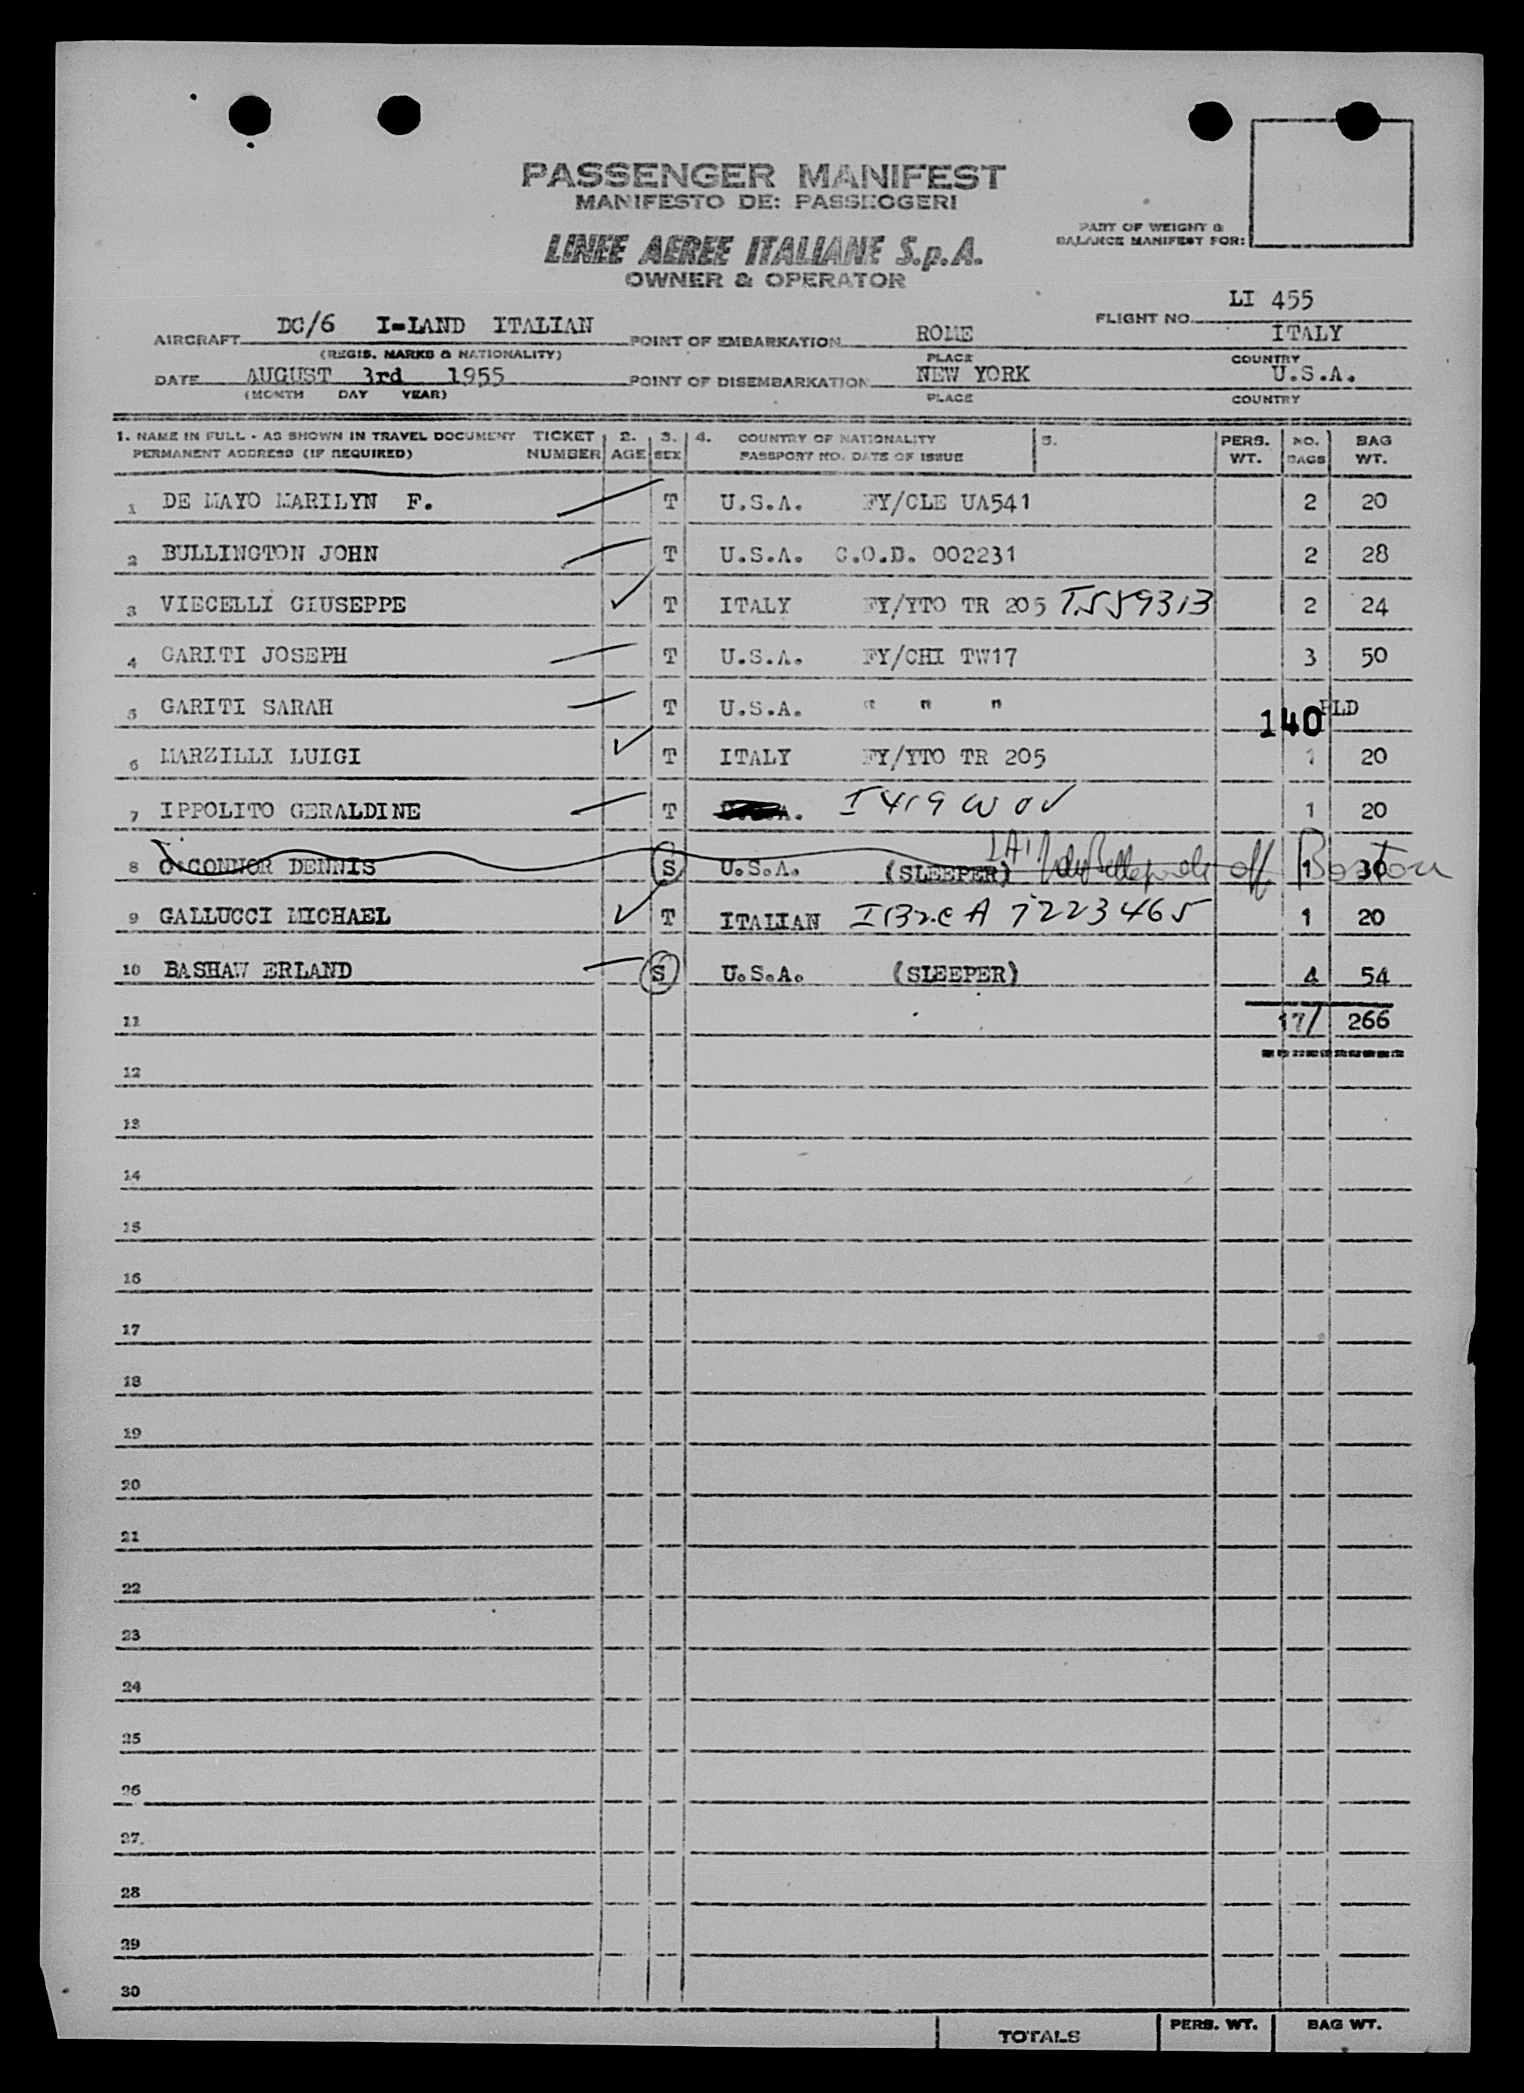 PASSENGER MANIFEST
MANIFESTO DE: PASSEGGERI
LINEE AEREE ITALIANE S.p.A.
OWNER & OPERATOR
PART OF WEIGHT &
BALANCE MANIFEST FOR:
FLIGHT NO. LI 455
AIRCRAFT DC/6 I-LAND ITALIAN POINT OF EMBARKATION ROME ITALY
(REGIS. MARKS & NATIONALITY) PLACE COUNTRY
DATE AUGUST 3rd 1955 POINT OF DISEMBARKATION NEW YORK U.S.A.
(MONTH DAY YEAR) PLACE COUNTRY
1. NAME IN FULL - AS SHOWN IN TRAVEL DOCUMENT TICKET 2. 3. 4. COUNTRY OF NATIONALITY 5. PERS. NO. BAG
PERMANENT ADDRESS (IF REQUIRED) NUMBER AGE SEX PASSPORT NO. DATE OF ISSUE WT. BAGS WT.
1 DE MAYO MARILYN F. T U.S.A. FY/CLE UA541 2 20
2 BULLINGTON JOHN T U.S.A. C.O.D. 002231 2 28
3 VIECELLI GIUSEPPE T ITALY FY/YTO TR 205 T559313 2 24
4 GARITI JOSEPH T U.S.A. FY/CHI TW17 3 50
5 GARITI SARAH T U.S.A. " " " PLD
140
6 MARZILLI LUIGI T ITALY FY/YTO TR 205 1 20
7 IPPOLITO GERALDINE T I 419 1 20
8 O'CONNOR DENNIS S U.S.A. (SLEEPER) LAI off Boston 1 30
9 GALLUCCI MICHAEL T ITALIAN A 7223465 1 20
10 BASHAW ERLAND S U.S.A. (SLEEPER) 4 54
11 17/ 266
12
13
14
15
16
17
18
19
20
21
22
23
24
25
26
27
28
29
30
TOTALS PERS. WT. BAG WT.